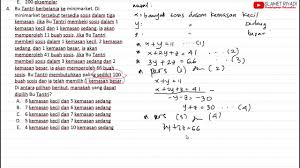 E. 200 eksemplar
4. Bu Tantri berbelanja ke minimarket. Di
minimarket tersebut tersedia sosis dalam tiga
kemasan. Jika Bu Tantri membeli sosis dalam 1
kemasan kecil dan 1 kemasan sedang, ia akan
memperoleh 11 buah sosis. Jika Bu Tantri
membeli sosis dalam 1 kemasan kecil, 2
kemasan sedang, dan 1 kemasan besar, ia akan
memperoleh 41 buah sosis. Jika Bu Tantri
membeli sosis dalam 3 kemasan sedang dan 2
kemasan besar, ia akan memperoleh 66 buah
sosis. Bu Tantri membutuhkan paling sedikit 100
buah sosis dan ia telah memilih 1 kemasan besar.
Di antara pilihan berikut, manakah yang dapat
dipilih Bu Tantri?
A. 8 kemasan kecil dan 5 kemasan sedang
B. 7 kemasan kecil dan 7 kemasan sedang
C. 6 kemasan kecil dan 8 kemasan sedang
D. 5 kemasan kecil dan 9 kemasan sedang
E. 4 kemasan kecil dan 10 kemasan sedang
SLAMET RIYADI
misal:
x: banyak sosis dalam kemasan kecil
y: sedang
z: besar
x + y = 11 ... (1)
x + 2y + z = 41 ... (2)
3y + 2z = 66 ... (3)
pers (1) (2)
x + y = 11
x + 2y + z = 41
-y - z = -30
y + z = 30 ... (4)
pers (3) (4)
3y + 2z = 66